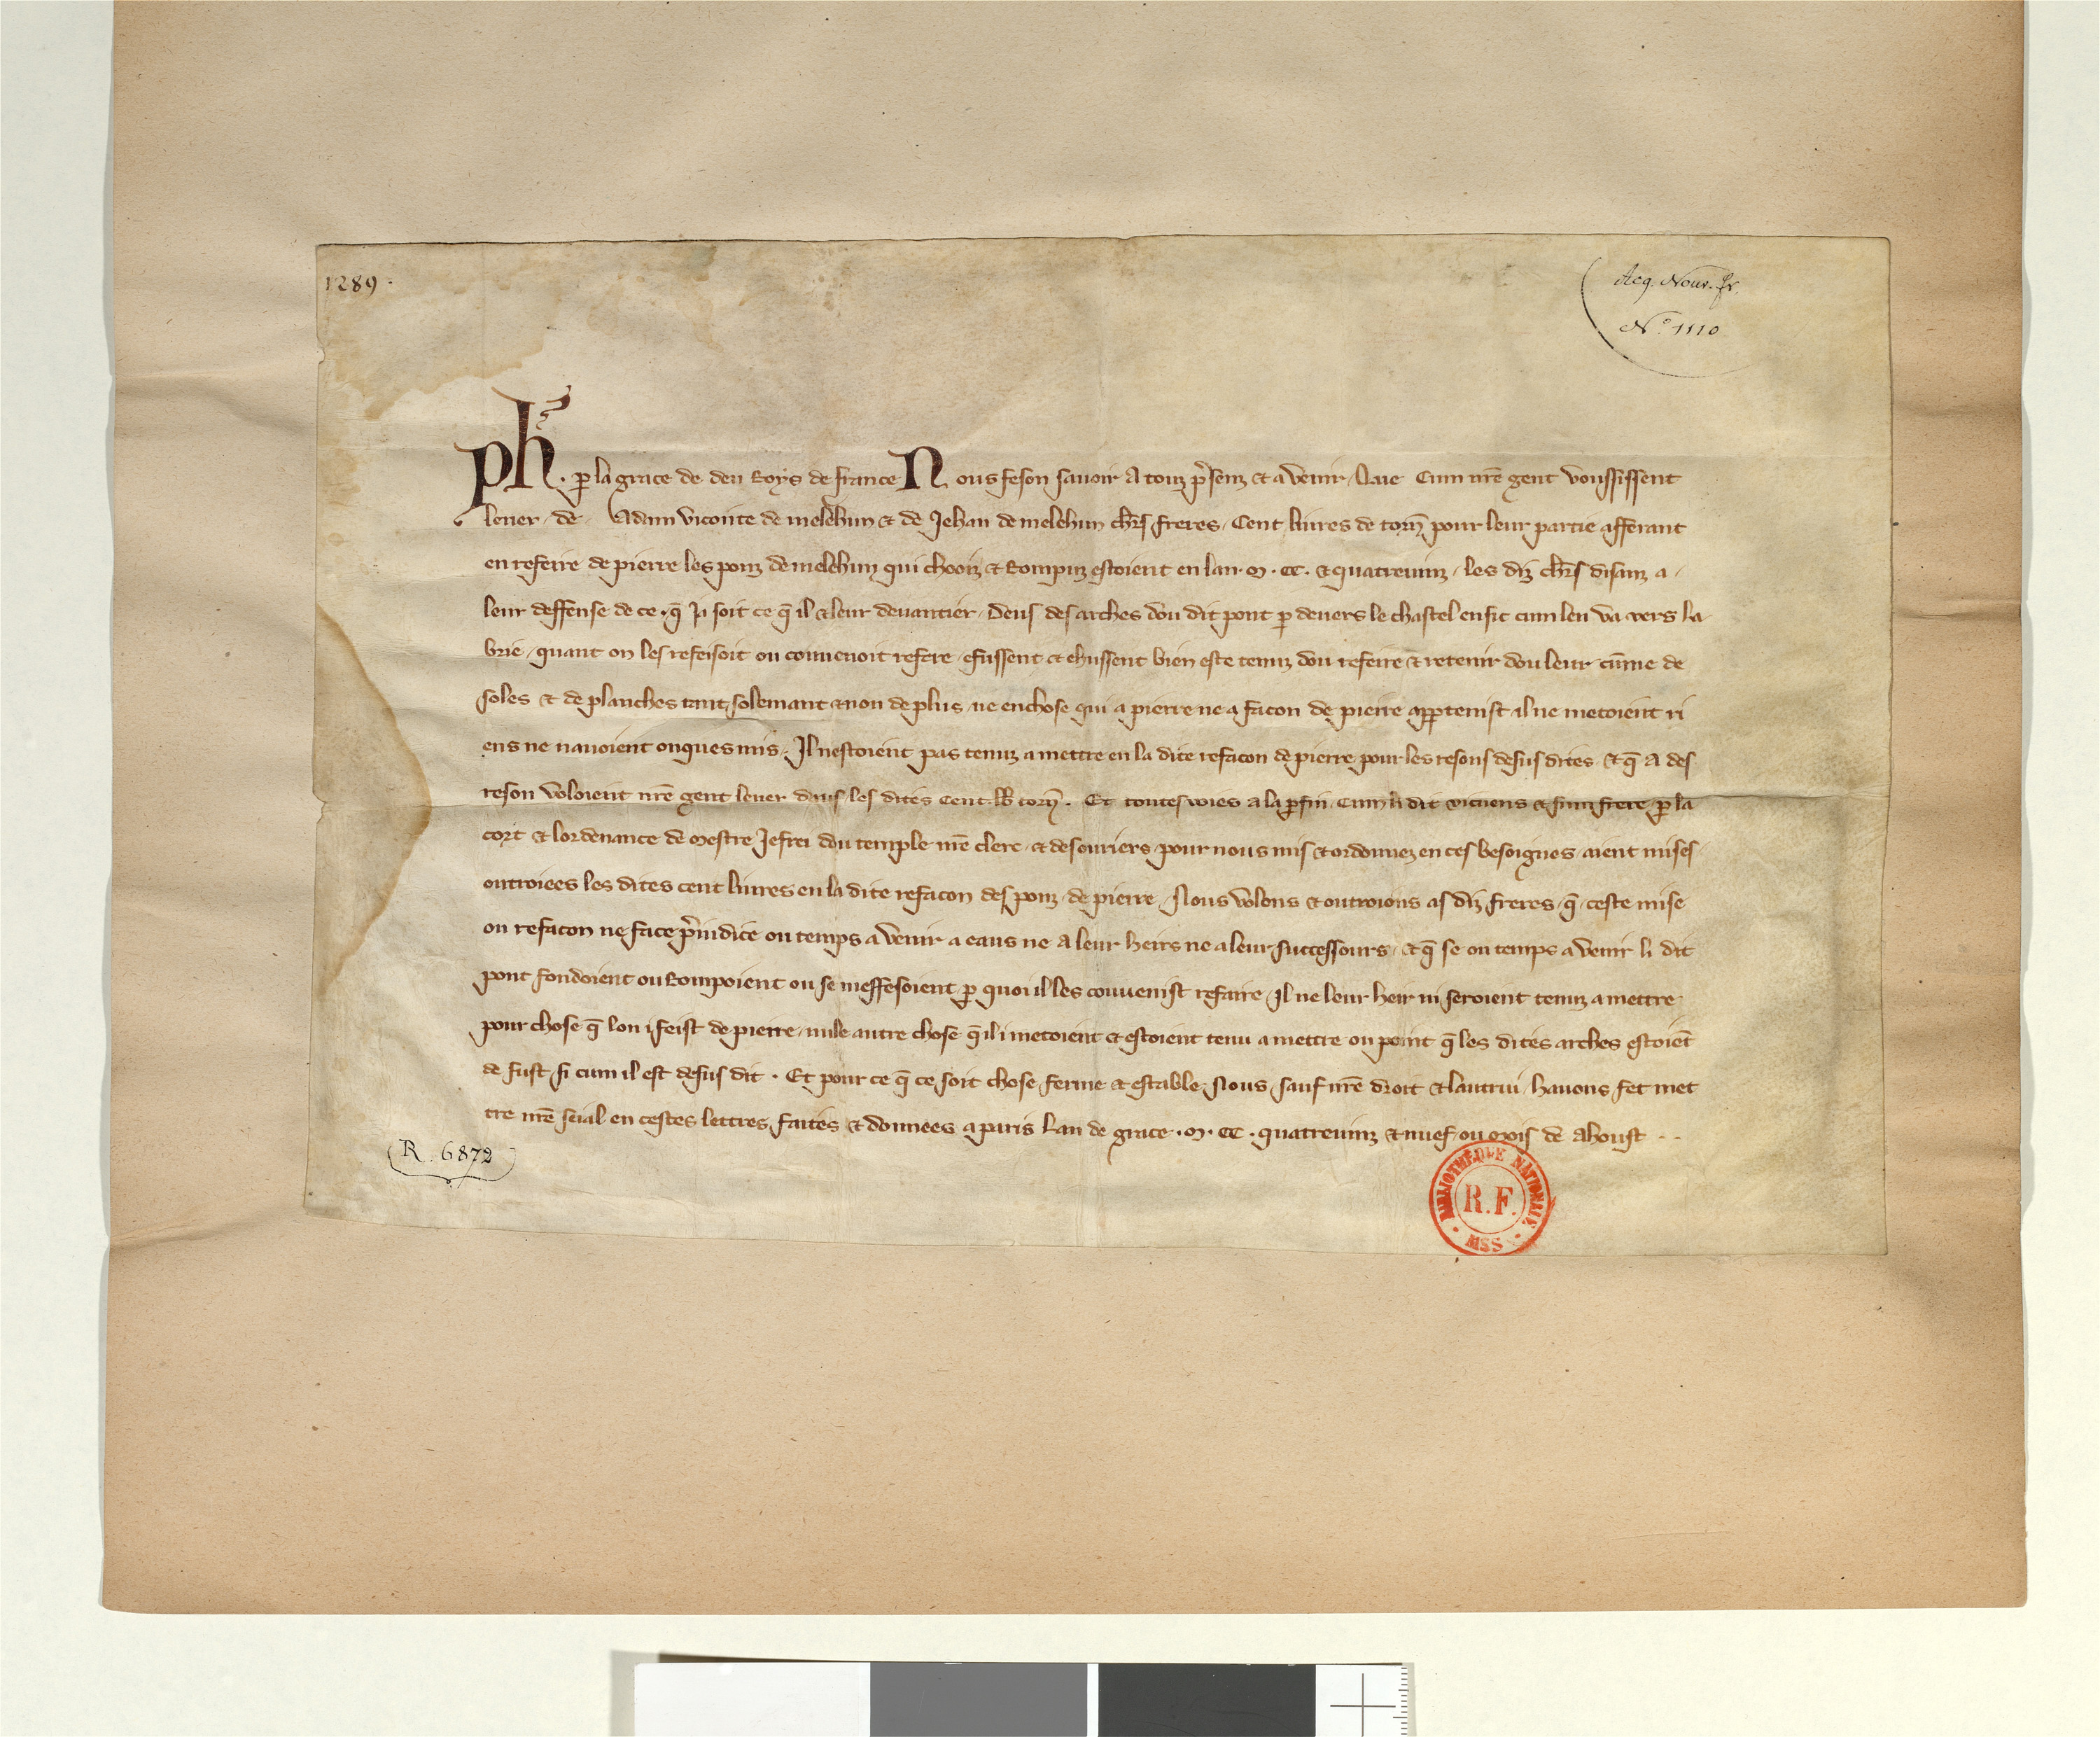 1289.
Acq. Nouv. fr.
Nº. 1110
Ph̃. ꝑ la grace de deu Roys de france Nous feson savoir A touz p̃senz & a venir / Que Cum nr̃e gent vousissent
lever / de / Adam viconte de melehun & de Jehan de melehun chl̃rs freres / Cent livres de torn̄ pour leur partie afferant
en refeire de pierre les ponz de melehun qui chooiz & Rompuz estoient en lan .M. CC. & quatrevinz / les diz chl̃rs disanz a /
leur deffense de ce . q̄ Ja soit ce q̄ il & leur devancier / Deus des arches dou dit pont ꝑ devers le chastel ensic cum len va vers la
brie / quant on les refeisoit ou convenoit refere / efussent & ehussent bien este tenuz dou refeire & retenir dou leur / cūme de
soles & de planches tant solemant & non de plus / ne en chose qui a pierre ne a facon de pierre apꝑtenist il ne metoient ri
ens ne navoient onques mis . Il nestoient pas tenuz a mettre en la dite refacon de pierre pour les resons desus dites & q̄ A des
reson voloient nr̃e gent lever daus les dites Cent lb̄ torn̄ . Et toutes voies a la ꝑfin / Cum li dit vicuens & sun frere / ꝑ la
cort & lordenance de mestre Jefrei dou temple nr̃e clerc / & des ouriers pour nous mis & ordonnez en ces besoignes / aient mises /
outroiees les dites cent livres en la dite refacon des ponz / de pierre / Nous volons & outroions as diz freres / q̄ / ceste mise
ou refacon ne face p̃iudice ou temps a venir a eaus ne a leur heirs ne a leur successours / & q̄ se ou temps a venir li dit
pont fondoient ou Rompoient ou se meffesoient / ꝑ quoi il les convenist refaire / Il ne leur heir ni seroient tenuz a mettre
pour chose q̄ lon i feist de pierre / nule autre chose q̄ il i metoient & estoient tenu a mettre ou point q̄ les dites arches estoiēt
de fust si cum il est desus dit . Et pour ce q̄ ce soit chose ferme & estable / Nous / sauf nr̃e droit & lautrui / havons fet met
tre nr̃e seial en cestes lettres faites & donnees a paris Lan de grace .M. CC . quatrevinz & nuef / ou mois de Ahoust . .
R. 6872
BIBLIOTHÈQUE NATIONALE
R.F.
MSS